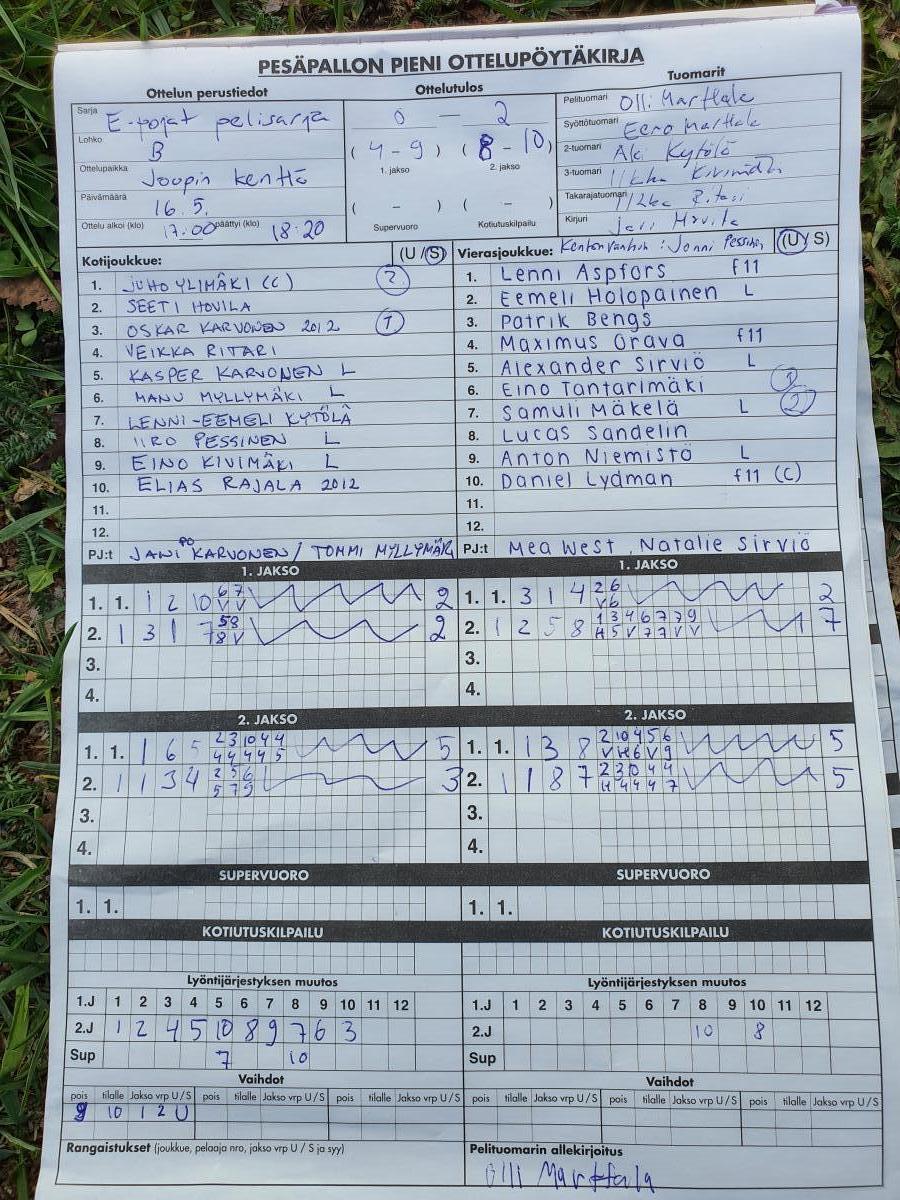 PESÄPALLON PIENI OTTELUPÖYTÄKIRJA
Ottelun perustiedot
Ottelutulos
Tuomarit
Sarja E-pojat pelisarja
0 — 2
Pelituomari Olli Marttala
Lohko B
( 4 - 9 ) ( 8 - 10 )
1. jakso 2. jakso
Syöttötuomari Eero Marttala
2-tuomari Aki Kytölä
Ottelupaikka Joupin kenttä
3-tuomari Ilkka Kivimäki
Päivämäärä 16.5.
( - ) ( - )
Supervuoro Kotiutuskilpailu
Takarajatuomari Ilkka Ritari
Ottelu alkoi (klo) 17.00 päättyi (klo) 18:20
Kirjuri Jari Hovila
Kotijoukkue: (U / S)
Vierasjoukkue: Kentänvanhin: Jonni Pessinen (U / S)
1. JUHO YLIMÄKI (C) 2
2. SEETI HOVILA
3. OSKAR KARVONEN 2012 1
4. VEIKKA RITARI
5. KASPER KARVONEN L
6. MANU MYLLYMÄKI L
7. LENNI-EEMELI KYTÖLÄ
8. IIRO PESSINEN L
9. EINO KIVIMÄKI L
10. ELIAS RAJALA 2012
11.
12.
PJ:t JANI PO KARVONEN / TOMMI MYLLYMÄKI
1. Lenni Aspfors f11
2. Eemeli Holopainen L
3. Patrik Bengs
4. Maximus Orava f11
5. Alexander Sirviö L
6. Eino Tantarimäki 1
7. Samuli Mäkelä L 2
8. Lucas Sandelin
9. Anton Niemistö L
10. Daniel Lydman f11 (C)
11.
12.
PJ:t Mea West, Natalie Sirviö
1. JAKSO
1. 1. 1 2 10 6 7 2
V V
2. 1 3 1 7 5 8 2
8 V
3.
4.
1. JAKSO
1. 1. 3 1 4 2 6 2
V 6
2. 1 2 5 8 1 3 4 6 7 7 9 7
H 5 V 7 7 V V
3.
4.
2. JAKSO
1. 1. 1 6 5 2 3 10 4 4 5
4 4 4 4 5
2. 1 1 3 4 2 5 6 3
5 7 9
3.
4.
2. JAKSO
1. 1. 1 3 8 2 10 4 5 6 5
V H 6 V 9
2. 1 1 8 7 2 3 10 4 4 5
H 4 4 4 7
3.
4.
SUPERVUORO
1. 1.
SUPERVUORO
1. 1.
KOTIUTUSKILPAILU
KOTIUTUSKILPAILU
Lyöntijärjestyksen muutos
1.J 1 2 3 4 5 6 7 8 9 10 11 12
2.J 1 2 4 5 10 8 9 7 6 3
Sup 7 10
Lyöntijärjestyksen muutos
1.J 1 2 3 4 5 6 7 8 9 10 11 12
2.J 10 8
Sup
Vaihdot
pois tilalle Jakso vrp U / S pois tilalle Jakso vrp U / S pois tilalle Jakso vrp U / S
9 10 1 2 U
Vaihdot
pois tilalle Jakso vrp U / S pois tilalle Jakso vrp U / S pois tilalle Jakso vrp U / S
Rangaistukset (joukkue, pelaaja nro, jakso vrp U / S ja syy)
Pelituomarin allekirjoitus
Olli Marttala